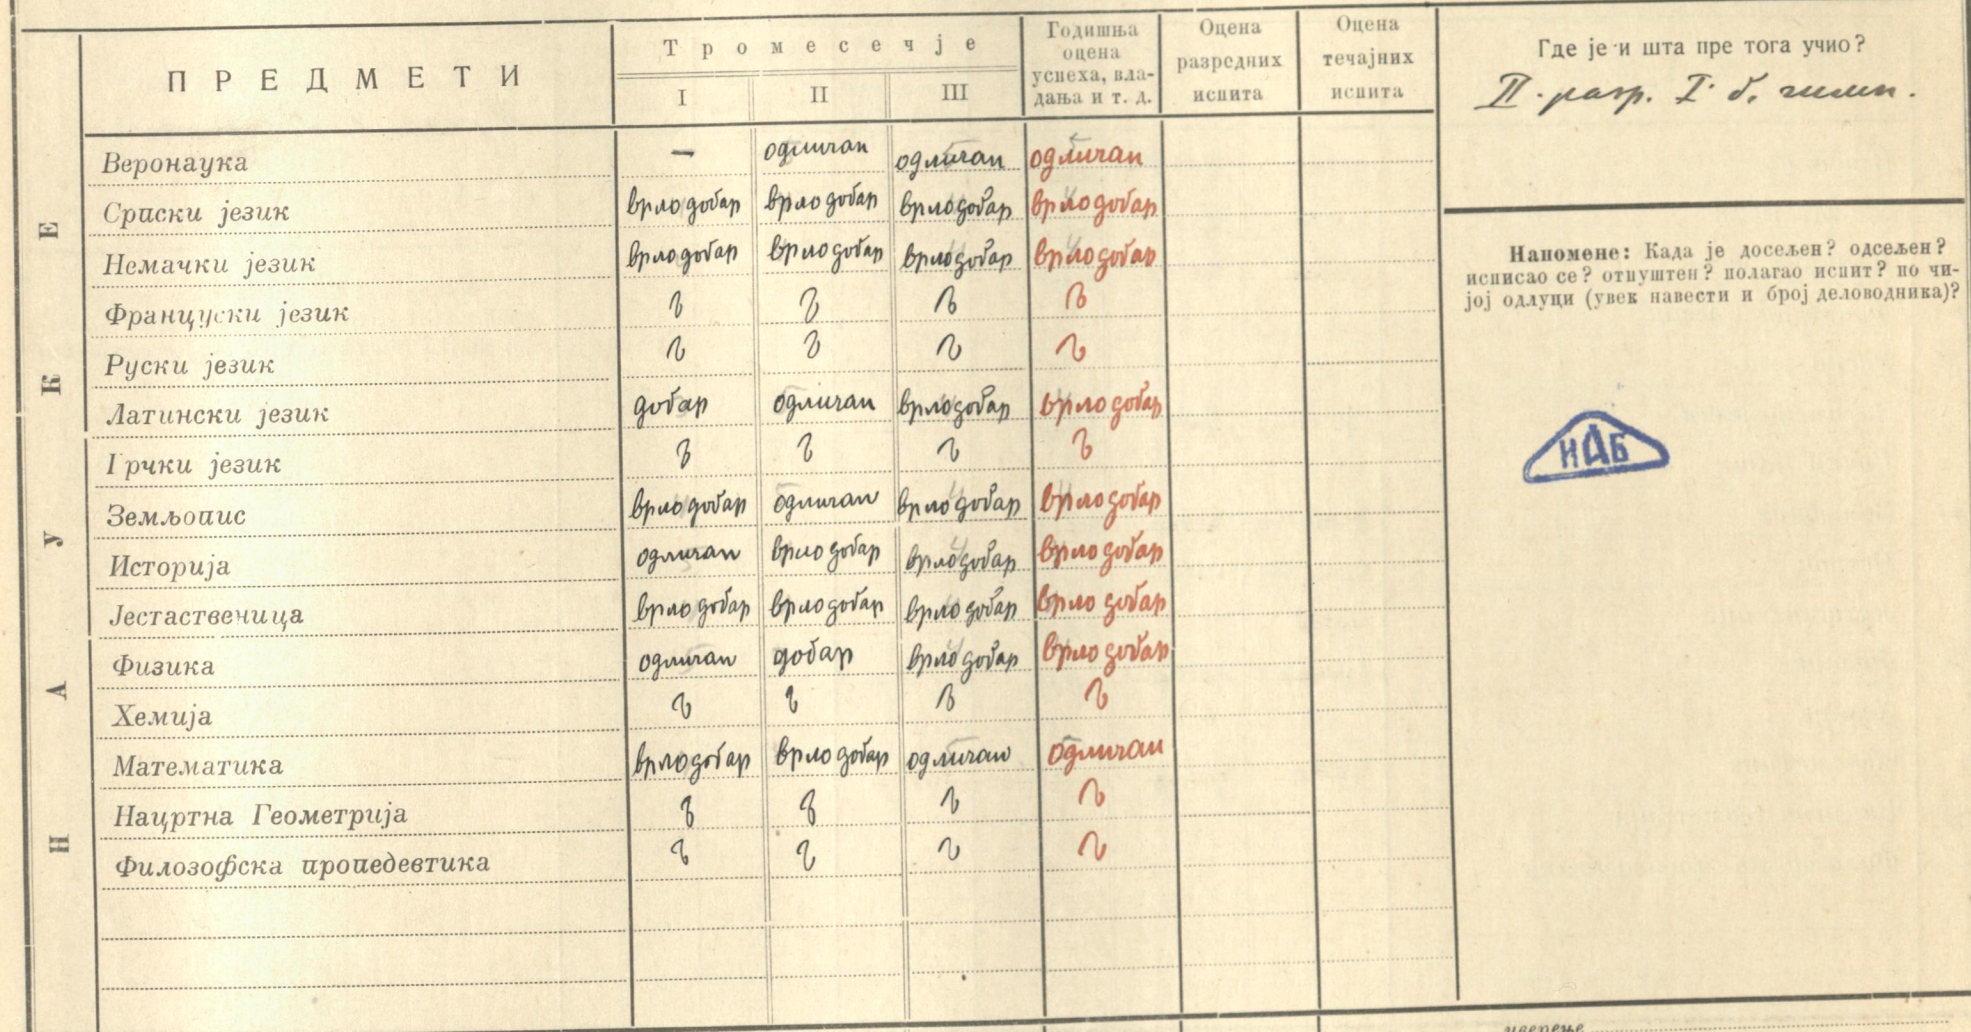 ПРЕДМЕТИ
Тромесечје
I II III
Годишња оцена успеха, вла-дања и т. д.
Оцена разредних испита
Оцена течајних испита
Где је и шта пре тога учио?
II. разр. I. б. гимн.
НАУКЕ
Веронаука — одличан одличан одличан
Српски језик врло добар врло добар врло добар врло добар
Немачки језик врло добар врло добар врло добар врло добар
Француски језик
Руски језик
Латински језик добар одличан врло добар врло добар
Грчки језик
Земљопис врло добар одличан врло добар врло добар
Историја одличан врло добар врло добар врло добар
Јестаственица врло добар врло добар врло добар врло добар
Физика одличан добар врло добар врло добар
Хемија
Математика врло добар врло добар одличан одличан
Нацртна Геометрија
Филозофска пропедевтика
Напомене: Када је досељен? одсељен?
исписао се? отпуштен? полагао испит? по чи-
јој одлуци (увек навести и број деловодника)?
ИАБ
уверење